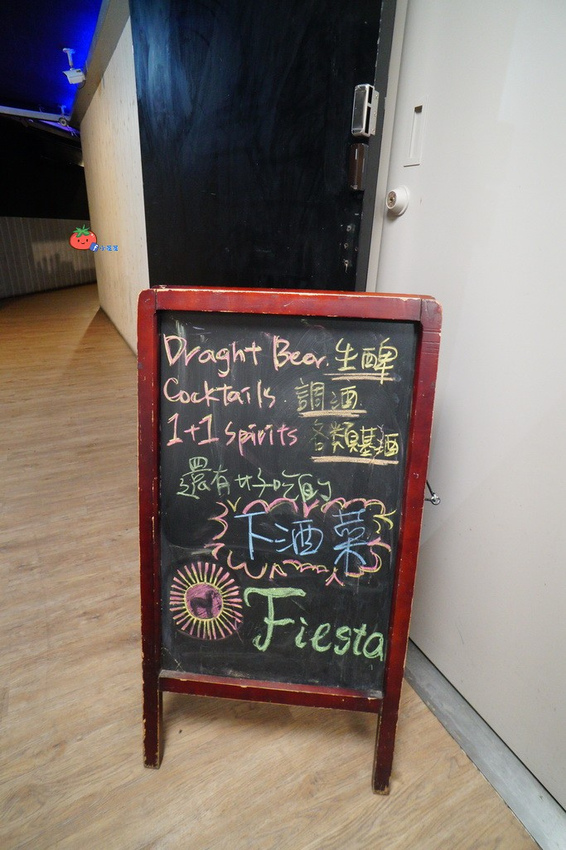 Draght Bear. 生啤
Cocktails. 調酒
1+1 Spirits 各類基酒
還有好吃的
下酒菜
Fiesta